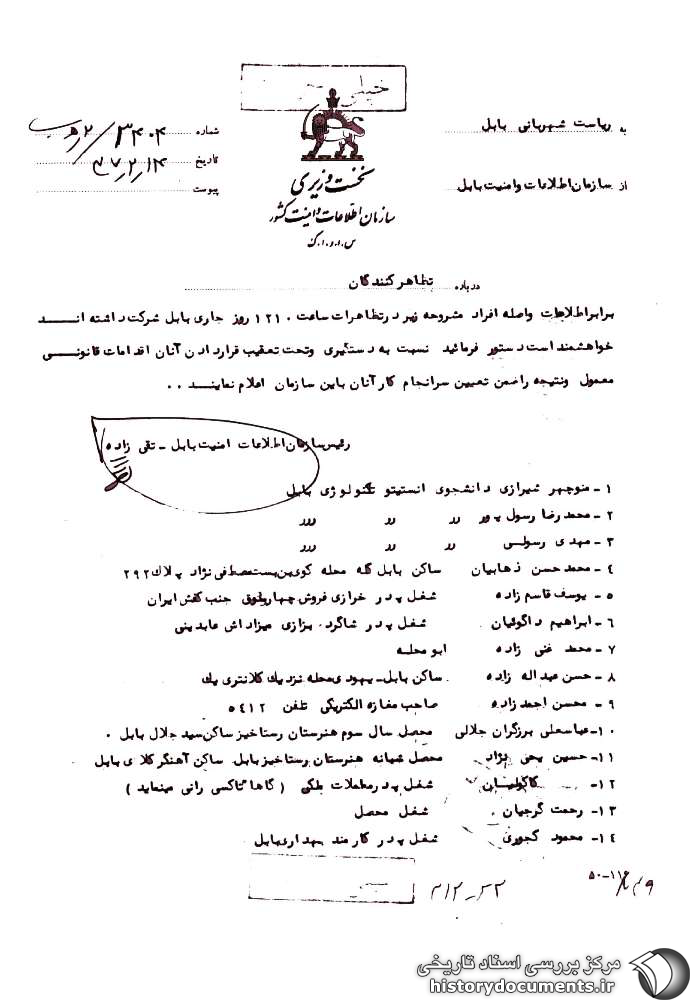 خیلی
به ریاست شهربانی بابل
از سازمان اطلاعات و امنیت بابل
نخست وزیری
سازمان اطلاعات و امنیت کشور
س.ا.و.ا.ک
شماره ۳۴۰۴/
تاریخ ۳۷٫۲٫۱۴
پیوست
درباره تظاهرکنندگان
برابر اطلاعات واصله افراد مشروحه زیر در تظاهرات ساعت ۱۲۱۰ روز جاری بابل شرکت داشته انـــد
خواهشمند است دستور فرمائید نسبت به دستگیری و تحت تعقیب قرار دادن آنان اقدامات قانونـــی
معمول و نتیجه را ضمن تعیین سرانجام کار آنان باین سازمان اعلام نماینـــد ..
رئیس سازمان اطلاعات امنیت بابل - تقی زاده
۱- منوچهر شیرازی دانشجوی انستیتو تکنولوژی بابل
۲- محمد رضا رسول پور رر رر ررر
۳- مهدی رسولی رر رر ررر
۴- محمد حسن ذهابیان ساکن بابل گله محله کوی بن بست مصطفی نژاد پلاک ۲۹۲
۵- یوسف قاسم زاده شغل پدر خرازی فروش جنب کفش ایران
۶- ابراهیم داگوئیان شغل پدر شاگرد بزازی میزاداش عابدینی
۷- محمد غنی زاده ابو محله
۸- حسن عبداله زاده ساکن بابل - یهودی محله نزدیک کلانتری یک
۹- محسن احمدزاده صاحب مغازه الکتریکی تلفن ۵۴۱۲
۱۰- عباسعلی برزگران جلالی محصل سال سوم هنرستان رستاخیز ساکن سید جلال بابل .
۱۱- حسین یحی نژاد محصل شبانه هنرستان رستاخیز بابل ساکن آهنگر کلای بابل
۱۲- کاکولیان شغل پدر معاملات ملکی ( گاها تاکسی رانی مینماید )
۱۳- رحمت گرجیان . شغل محصل
۱۴- محمود کجوری شغل پدر کارمند بهداری بابل
۵۰-۱۱۶
۲۱۲-۳۲
مرکز بررسی اسناد تاریخی
historydocuments.ir